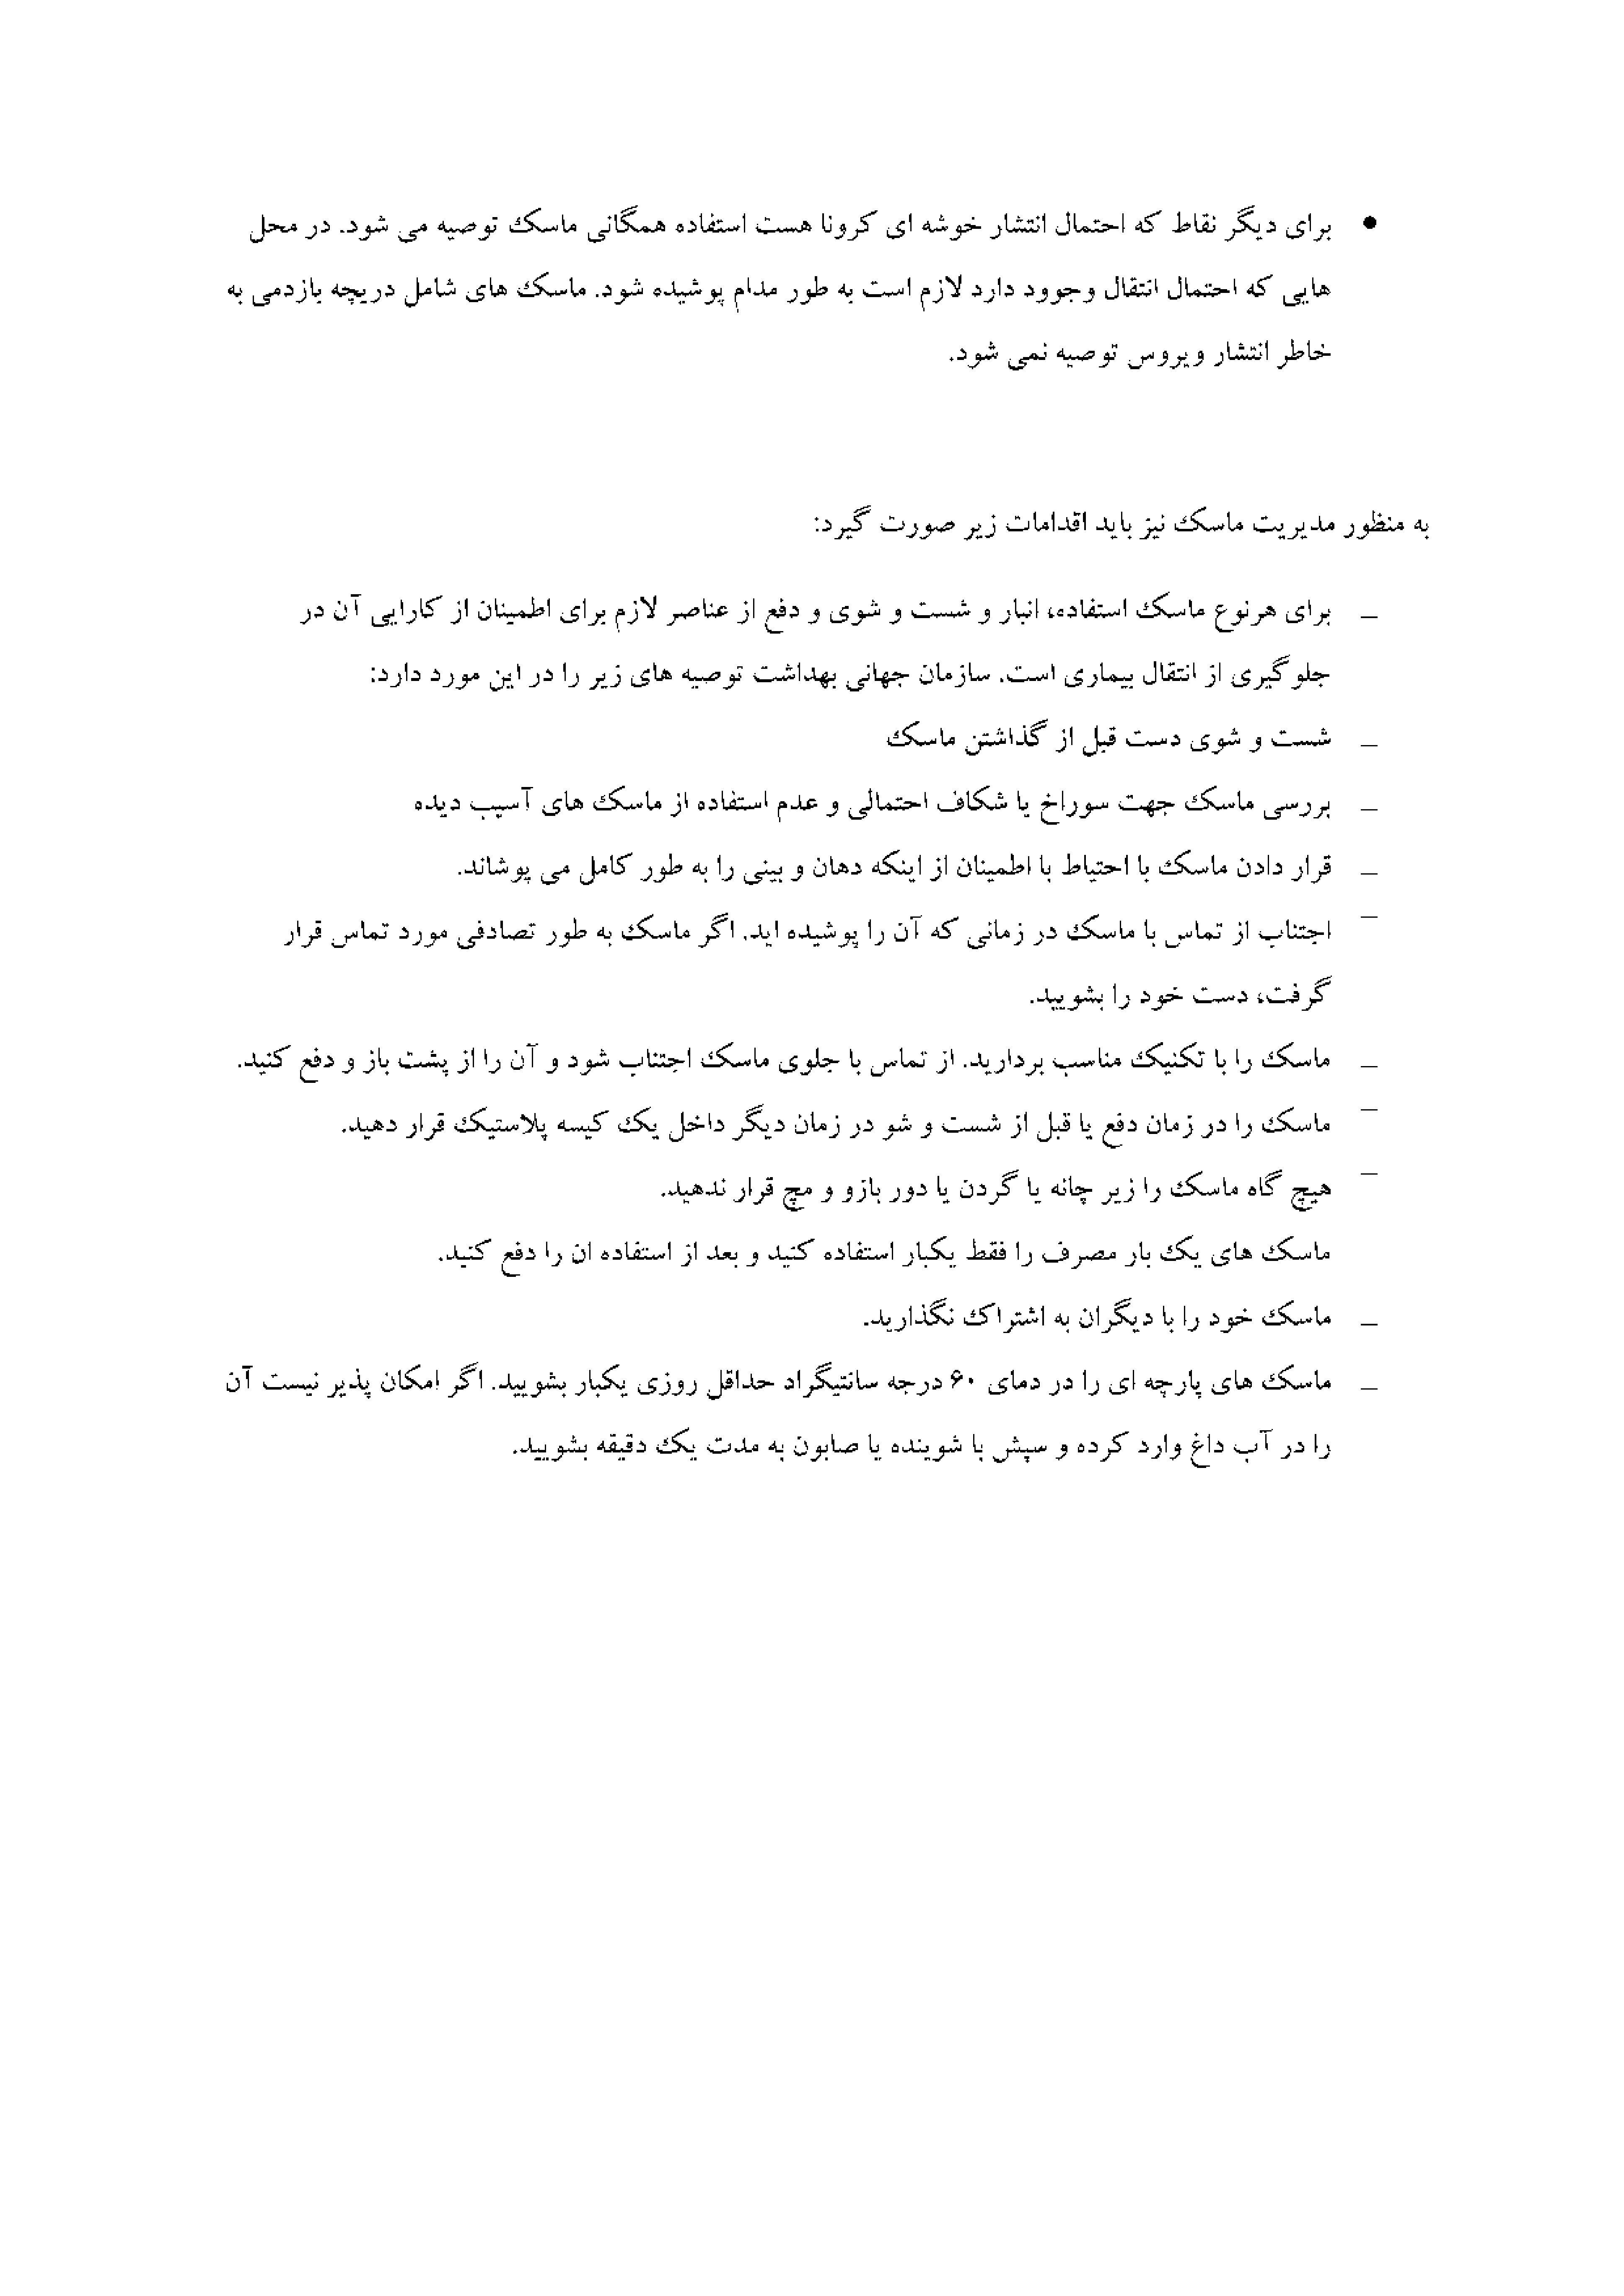 • برای دیگر نقاط که احتمال انتشار خوشه ای کرونا هست استفاده همگانی ماسک توصیه می شود. در محل
هایی که احتمال انتقال وجوود دارد لازم است به طور مدام پوشیده شود. ماسک های شامل دریچه بازدمی به
خاطر انتشار ویروس توصیه نمی شود.
به منظور مدیریت ماسک نیز باید اقدامات زیر صورت گیرد:
_ برای هرنوع ماسک استفاده، انبار و شست و شوی و دفع از عناصر لازم برای اطمینان از کارایی آن در
جلوگیری از انتقال بیماری است. سازمان جهانی بهداشت توصیه های زیر را در این مورد دارد:
_ شست و شوی دست قبل از گذاشتن ماسک
_ بررسی ماسک جهت سوراخ یا شکاف احتمالی و عدم استفاده از ماسک های آسیب دیده
_ قرار دادن ماسک با احتیاط با اطمینان از اینکه دهان و بینی را به طور کامل می پوشاند.
_ اجتناب از تماس با ماسک در زمانی که آن را پوشیده اید. اگر ماسک به طور تصادفی مورد تماس قرار
گرفت، دست خود را بشویید.
_ ماسک را با تکنیک مناسب بردارید. از تماس با جلوی ماسک اجتناب شود و آن را از پشت باز و دفع کنید.
_ ماسک را در زمان دفع یا قبل از شست و شو در زمان دیگر داخل یک کیسه پلاستیک قرار دهید.
_ هیچ گاه ماسک را زیر چانه یا گردن یا دور بازو و مچ قرار ندهید.
ماسک های یک بار مصرف را فقط یکبار استفاده کنید و بعد از استفاده ان را دفع کنید.
_ ماسک خود را با دیگران به اشتراک نگذارید.
_ ماسک های پارچه ای را در دمای ۶۰ درجه سانتیگراد حداقل روزی یکبار بشویید. اگر امکان پذیر نیست آن
را در آب داغ وارد کرده و سپش با شوینده یا صابون به مدت یک دقیقه بشویید.